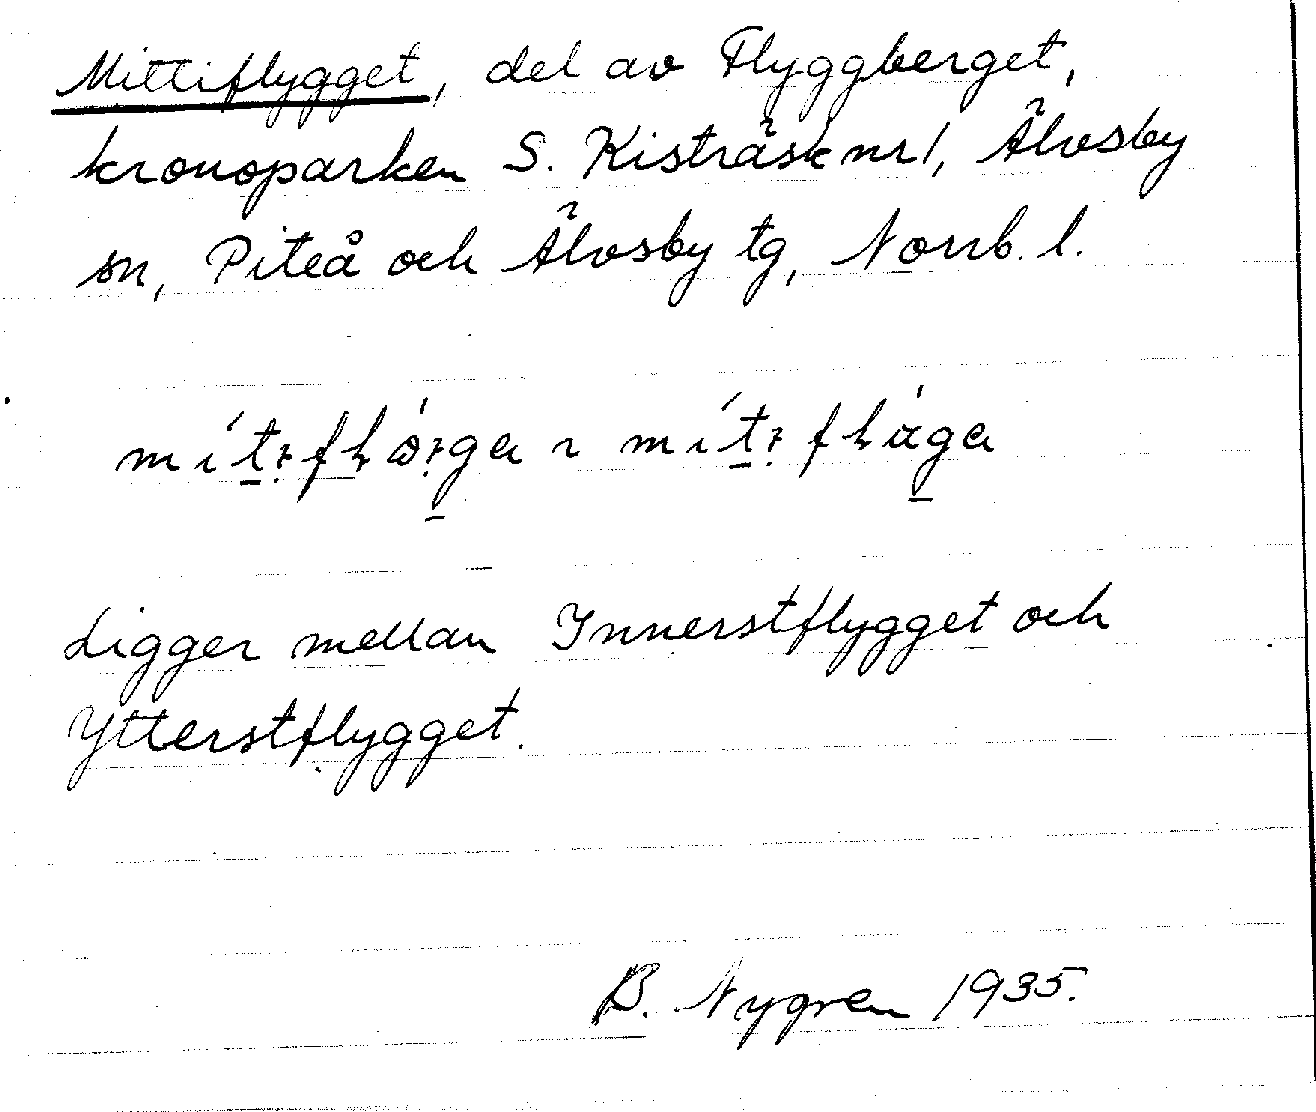 Mittiflygget, del av Flyggberget,
kronoparken S. Kisträsk nr 1, Älvsby
sn, Piteå och Älvsby tg, Norrb. l.
Ligger mellan Innerstflygget och
Ytterstflygget.
B. Nygren 1935.